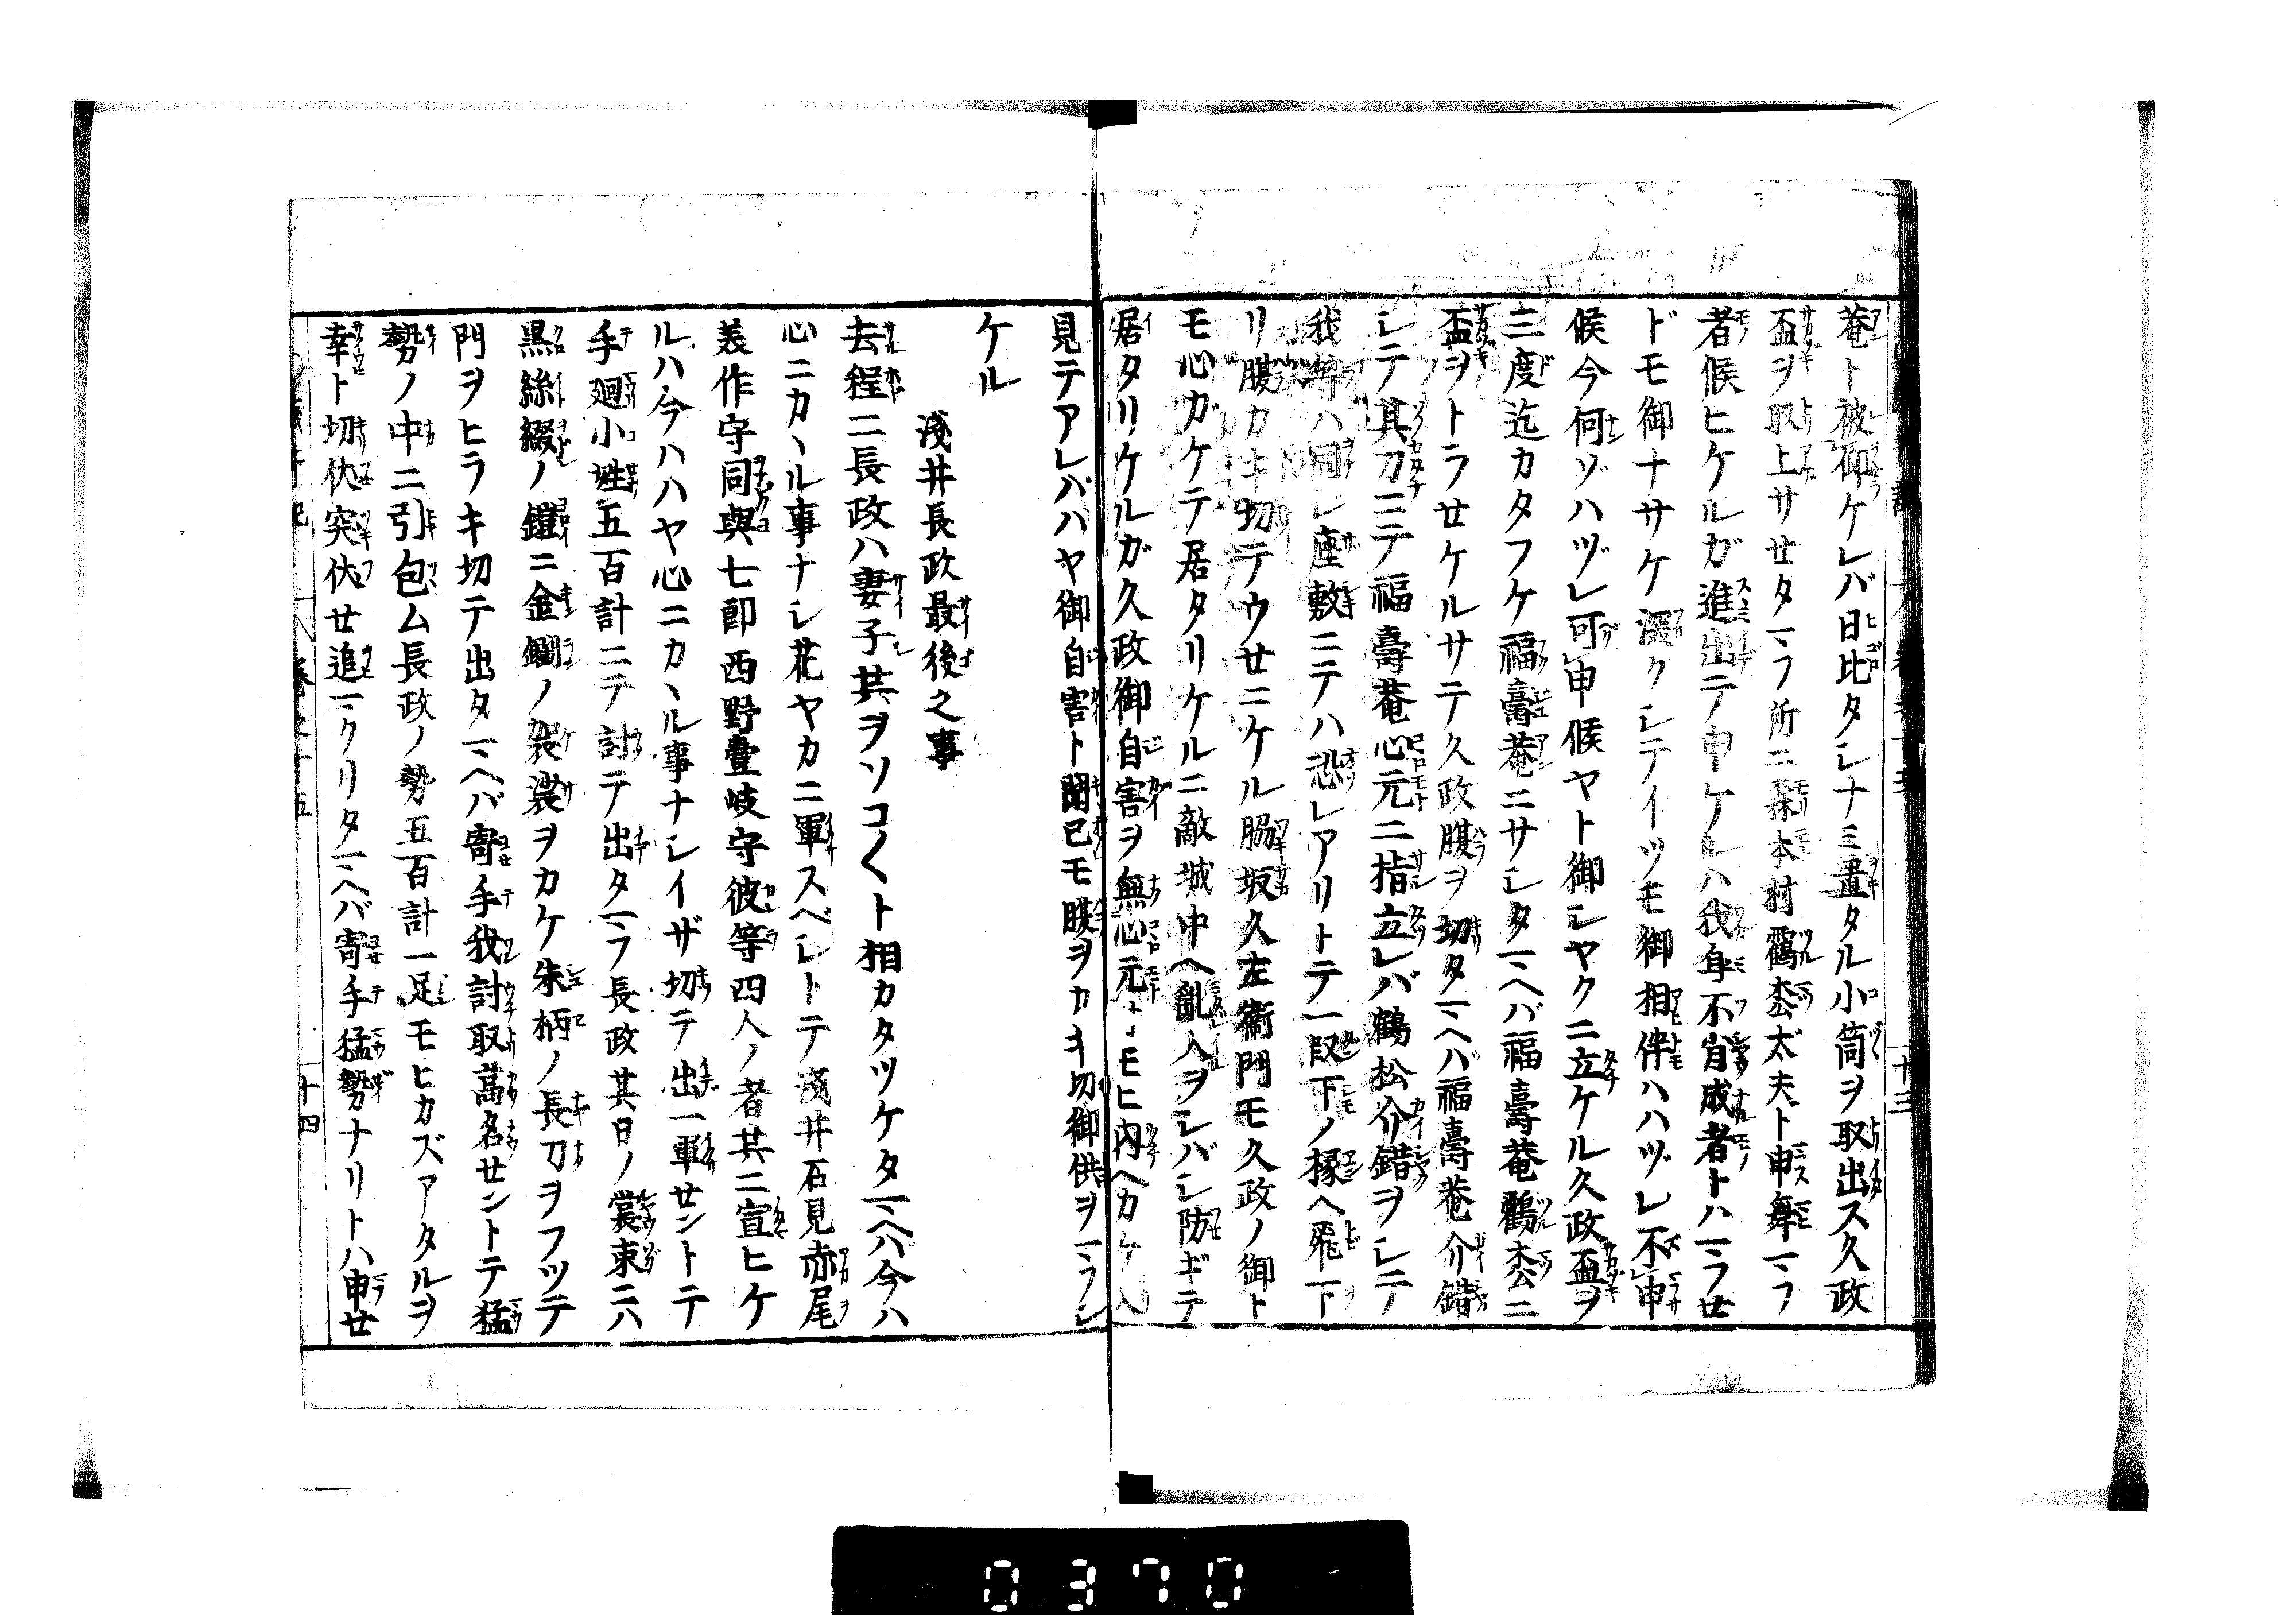 菴ト被仰ケレバ日比タシナミ置タル小筒ヲ取出ス久政
盃ヲ取上サセタマフ所ニ森本村鶴松太夫ト申舞マフ
者候ヒケルガ進出テ申ケルハ我身不肖成者トハマフセ
ドモ御ナサケ深クシテイツモ御相伴ハハヅレ不申
候今何ゾハヅレ可申候ヤト御シヤクニ立ケル久政盃ヲ
三度迄カタフケ福壽菴ニサシタマヘバ福壽菴鶴松ニ
盃ヲトラせケルサテ久政腹ヲ切タマヘバ福壽菴介錯
シテ其刀ニテ福壽菴心元ニ指立レバ鶴松介錯ヲシテ
我等ハ同シ座敷ニテハ恐レアリトテ一段下ノ椽ヘ飛下
リ腹カキ切テウセニケル脇坂久左衛門モ久政ノ御ト
モ心ガケテ居タリケルニ敵城中ヘ亂入ヲシバシ防ギテ
居タリケルガ久政御自害ヲ無心元モヒ内ヘカケ入
見テアレバハヤ御自害ト聞已モ腹ヲカキ切御供ヲマフシ
ケル
淺井長政最後之事
去程ニ長政ハ妻子共ヲソコ〱ト相カタツケタマヘバ今ハ
心ニカヽル事ナシ花ヤカニ軍スベシトテ淺井石見赤尾
美作守同與七郎西野壹岐守彼等四人ノ者共ニ宣ヒケ
ルハ今ハハヤ心ニカヽル事ナシイザ切テ出一軍セントテ
手廻小姓五百計ニテ討テ出タマフ長政其日ノ裳束ニハ
黒絲綴ノ鎧ニ金襴ノ袈裟ヲカケ朱柄ノ長刀ヲフツテ
門ヲヒラキ切テ出タマヘバ寄手我討取高名セントテ猛
勢ノ中ニ引包ム長政ノ勢五百計一足モヒカズアタルヲ
幸ト切伏突伏セ追マクリタマヘバ寄手猛勢ナリトハ申セ
卷之十五
十四
十三
0370